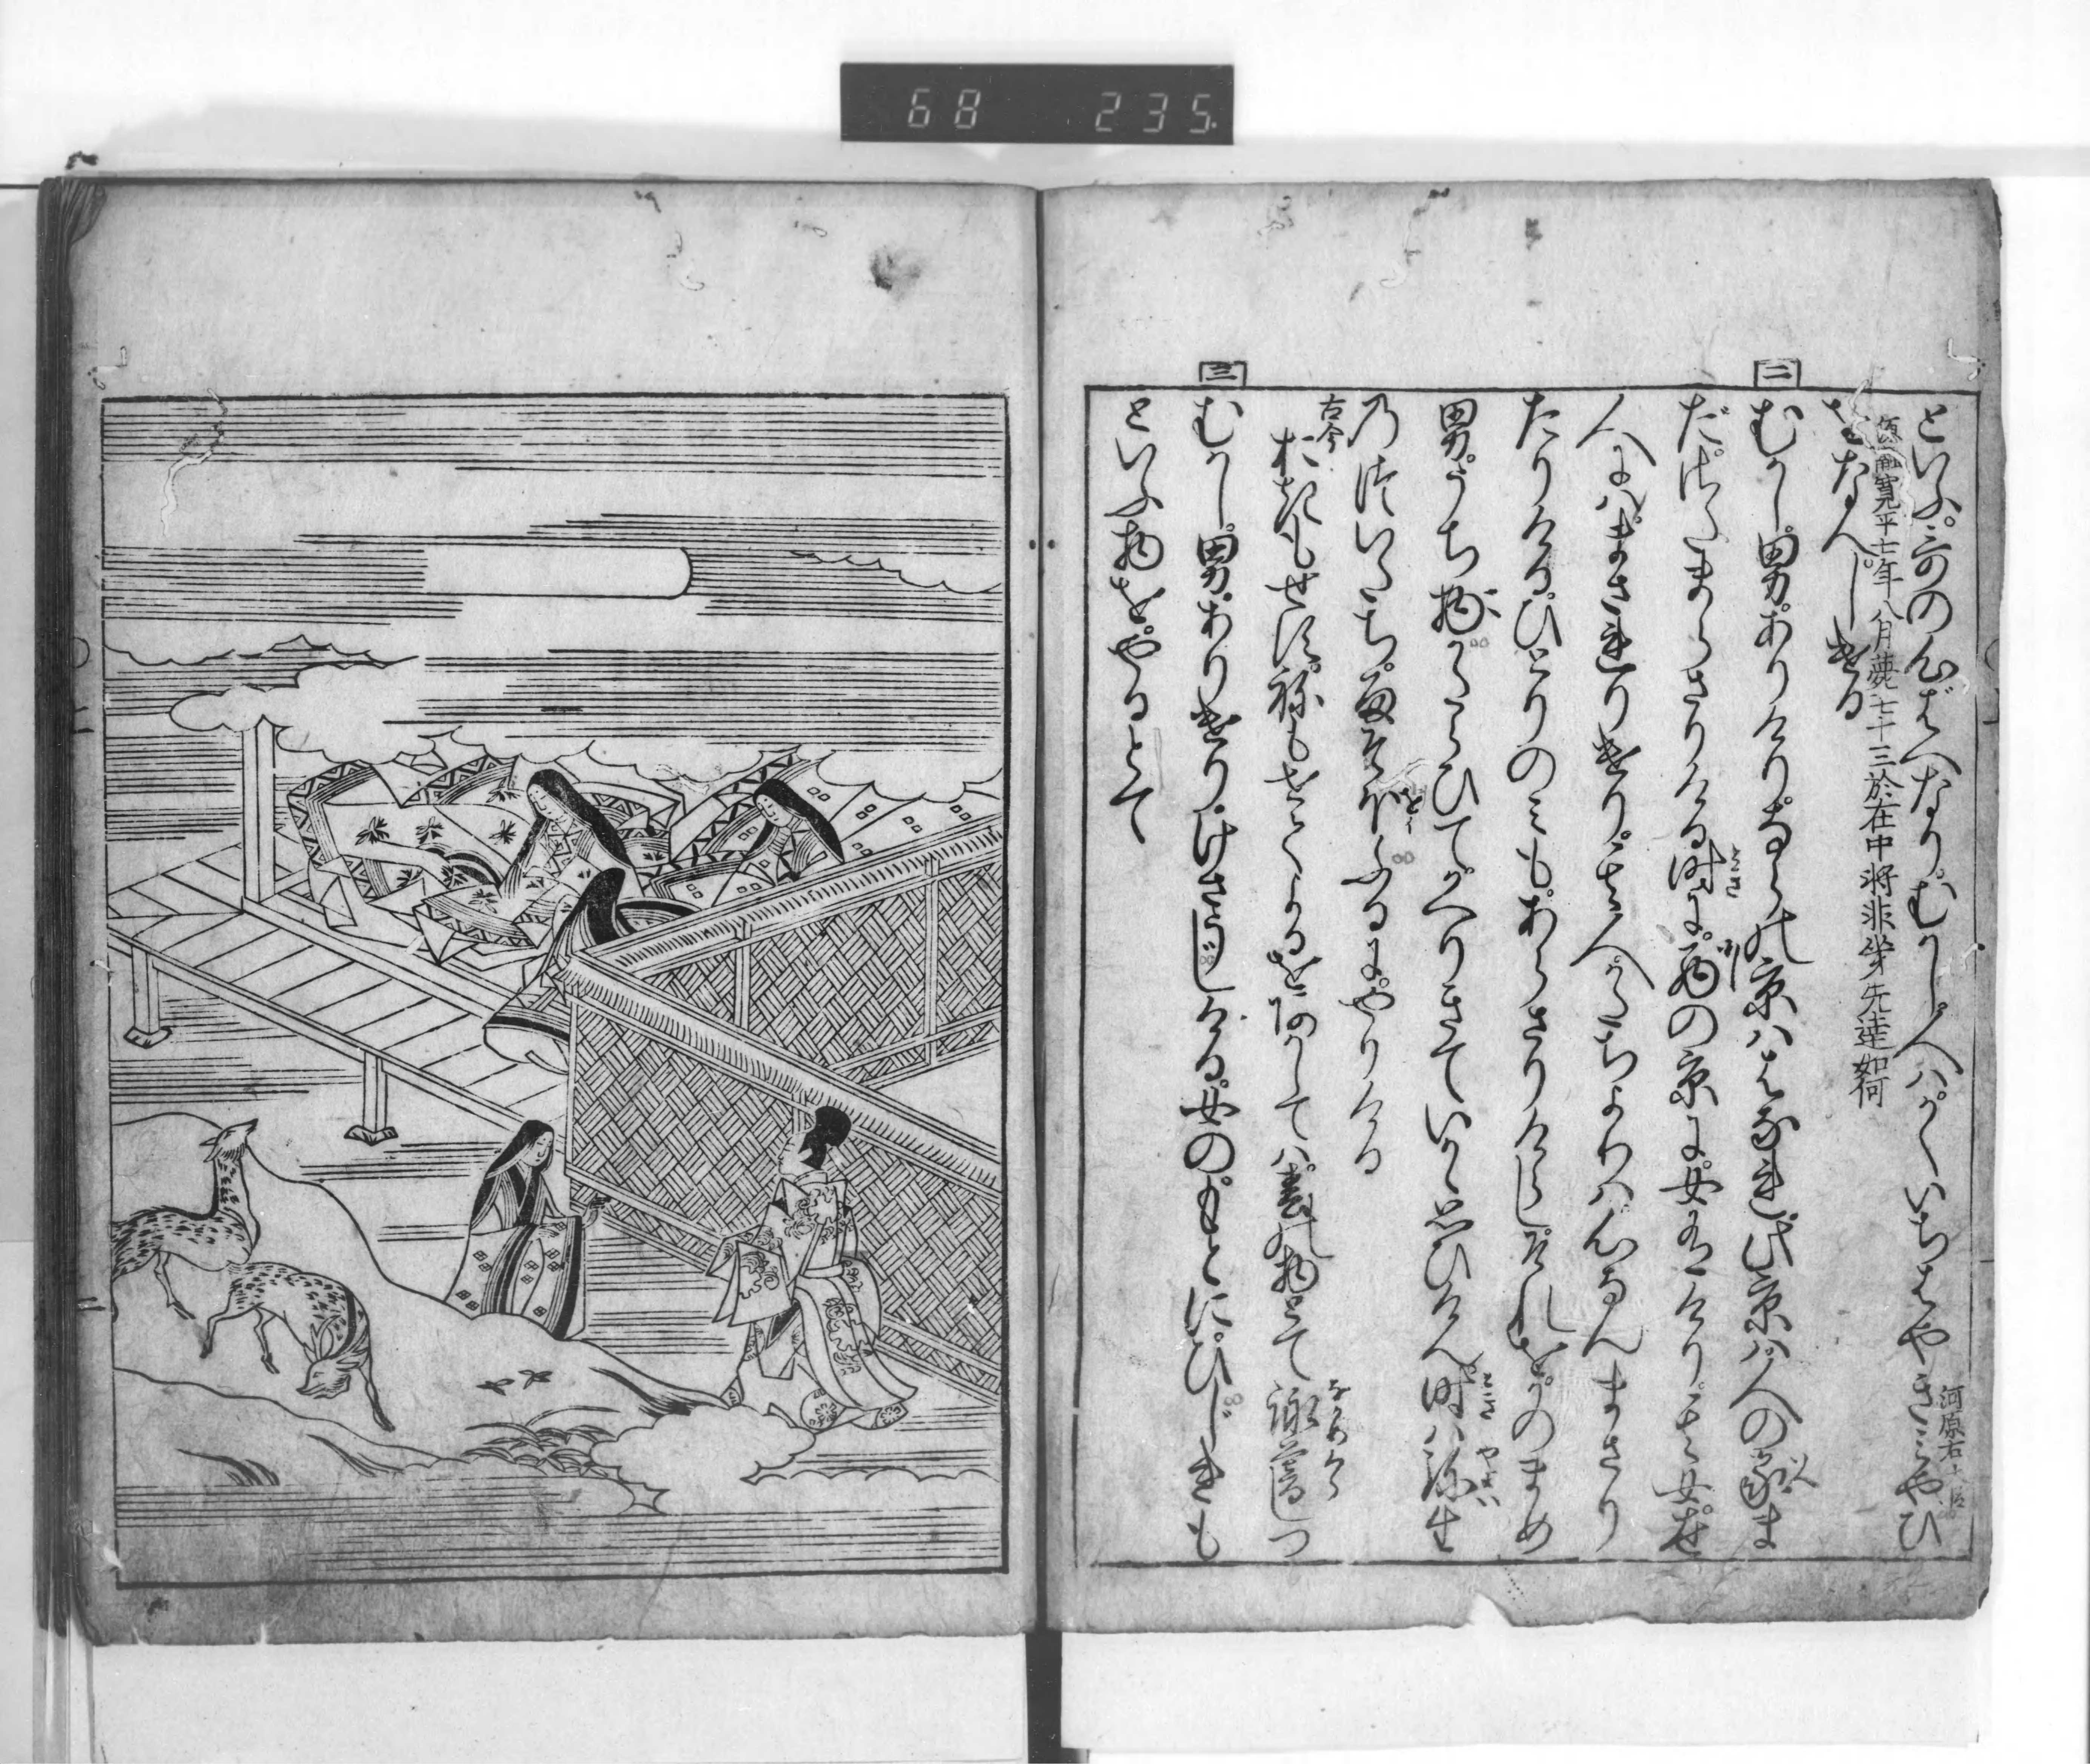 68 235
といふ哥の心ばへなりむかし人はかくいちはやきみやひ
河原右大臣
源融寛平七年八月薨七十三於在中将非先達如何
をなんしける
二
むかし男ありけりならの京ははなれ此京は人の家ま
いへ
だ定まらさりける時に西の京に女有けりその女世
とき
にし
人にはまされりけりその人かたちよりは心なんまさり
たりけるひとりのみもあらさりけらしそれをかのまめ
男うち物かたらひてかへりきていかゝ思ひけん時は弥生
とき
やよひ
のついたち雨そほふるにやりける
古今
おきもせすねもせてよるをあかしては春の物とて詠暮しつ
ながめくら
三
むかし男ありけりけさうしける女のもとにひじきも
といふ物をやるとて